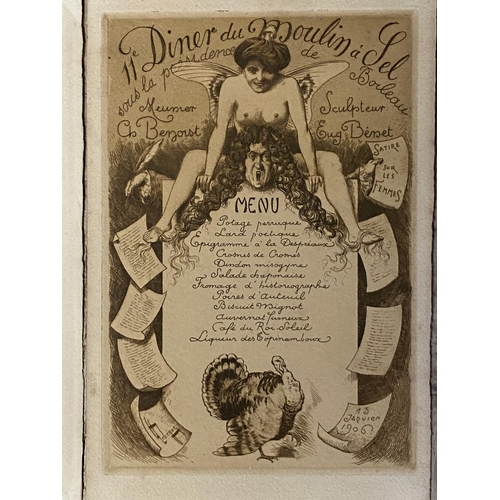 11e Diner du Moulin à Sel
sous la présidence de Boileau
Meunier Sculpteur
Ch Benoist Eug Bénet
SATIRE
SUR
LES
FEMMES
MENU
Potage perruque
Lard poétique
Epigramme à la Despréaux
Crosnes de Cromes
Dindon misogyne
Salade chaponaise
Fromage d'historiographe
Poires d'Auteuil
Biscuit Mignot
Auvernat fumeux
Café du Roi-Soleil
Liqueur des Topinamboux
13
Janvier
1906